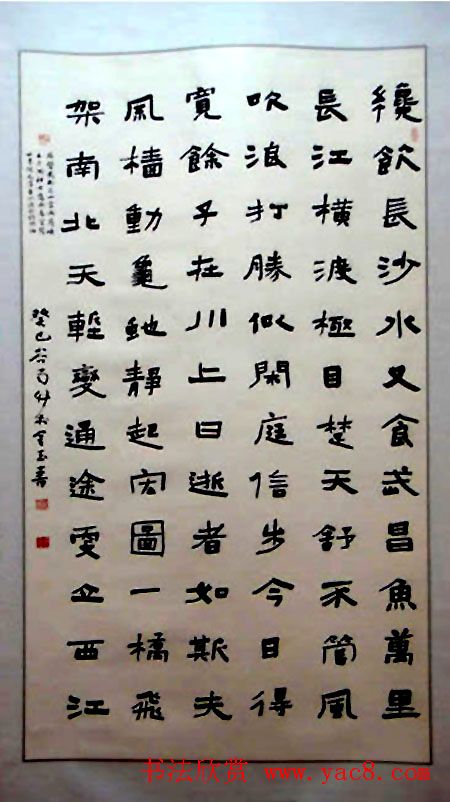 纔飲長沙水又食武昌魚萬里
長江橫渡極目楚天舒不管風
吹浪打勝似閑庭信步今日得
寬餘子在川上曰逝者如斯夫
風檣動龜蛇靜起宏圖一橋飛
架南北天塹變通途更立西江
癸巳谷雨
书法欣赏 www.yac8.com